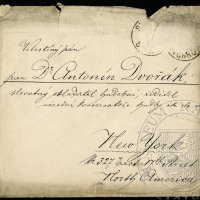 Velectěný pán
pan Dr Antonín Dvořák,
slovutný skladatel hudební, ředitel
národní konservatoře hudby etc.
New York
No 327 East 17th Street
North America